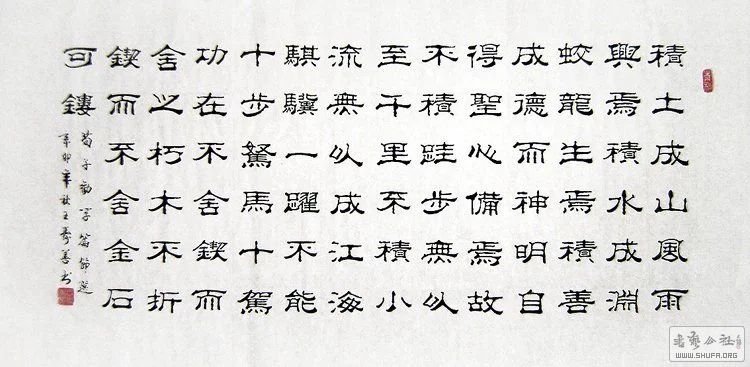 積土成山風雨
興焉積水成淵
蛟龍生焉積善
成德而神明自
得聖心備焉故
不積跬步無以
至千里不積小
流無以成江海
騏驥一躍不能
十步駑馬十駕
功在不舍鍥而
舍之朽木不折
鍥而不舍金石
可鏤
荀子勸学篇節选
辛卯年秋王善书
书艺公社
WWW.SHUFA.ORG